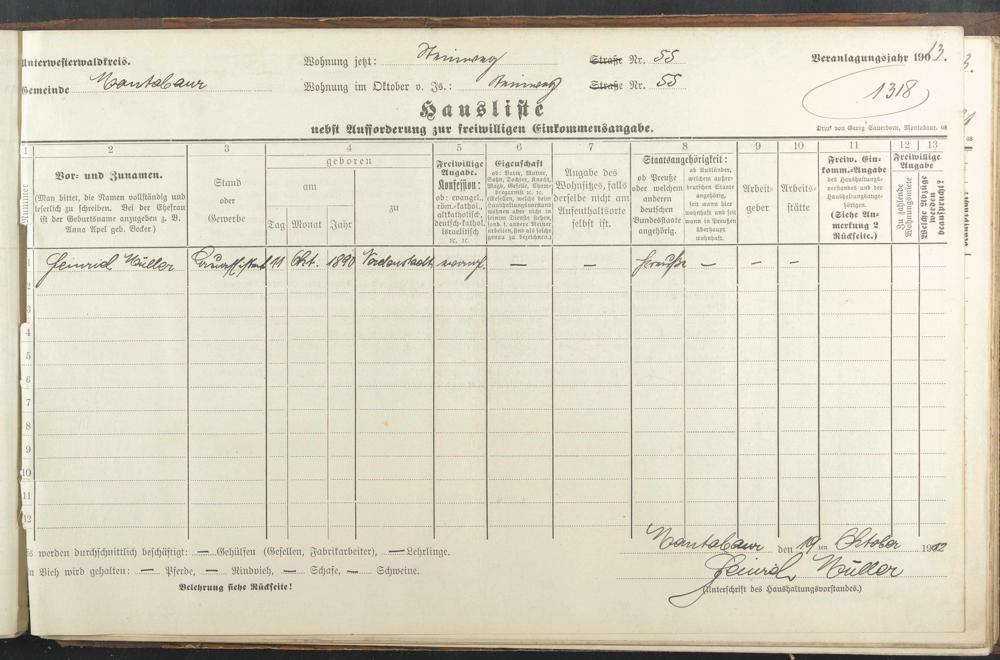 Unterwesterwaldkreis.
Wohnung jetzt: Steinweg Straße Nr. 55
Veranlagungsjahr 1913.
Gemeinde Montabaur
Wohnung im Oktober v. Js.: Steinweg Straße Nr. 55
1318
Hausliste
nebst Aufforderung zur freiwilligen Einkommensangabe.
Druck von Georg Sauerborn, Montabaur. 08
1 2 3 4 5 6 7 8 9 10 11 12 13
Nummer
Vor- und Zunamen.
(Man bittet, die Namen vollständig und
leserlich zu schreiben. Bei der Ehefrau
ist der Geburtsname anzugeben z. B.
Anna Apel geb. Becker.)
Stand
oder
Gewerbe
geboren
am
Tag Monat Jahr
zu
Freiwillige
Angabe.
Konfession:
ob: evangel.,
röm.-kathol.,
altkatholisch,
deutsch-kathol.,
israelitisch
ec. ec.
Eigenschaft
ob: Vater, Mutter,
Sohn, Tochter, Knecht,
Magd, Geselle, Chambregarnist ec. ec.
Angabe des
Wohnsitzes, falls
derselbe nicht am
Aufenthaltsorte
selbst ist.
Staatsangehörigkeit:
ob Preuße
oder welchem
anderen
deutschen
Bundesstaate
angehörig.
ob Ausländer,
welchem außerdeutschen Staate
angehörig,
seit wann hier
wohnhaft und seit
wann in Preußen
überhaupt
wohnhaft.
Arbeitgeber
Arbeitsstätte
Freiw. Einkomm.-Angabe
des Haushaltungsvorstandes und der
Haushaltungsangehörigen.
(Siehe Anmerkung 2
Rückseite.)
Freiwillige
Angabe
Zu zahlende
Wohnungsmiete
Welche Abzüge
werden
beansprucht?
1 Heinrich Müller 11 Okt. 1890 evang. — — Preuße — — —
2
3
4
5
6
7
8
9
10
11
12
Es werden durchschnittlich beschäftigt: — Gehülfen (Gesellen, Fabrikarbeiter), — Lehrlinge.
Montabaur den 19ten Oktober 1912
An Vieh wird gehalten: — Pferde, — Rindvieh, — Schafe, — Schweine.
Heinrich Müller
Belehrung siehe Rückseite!
(Unterschrift des Haushaltungsvorstandes.)